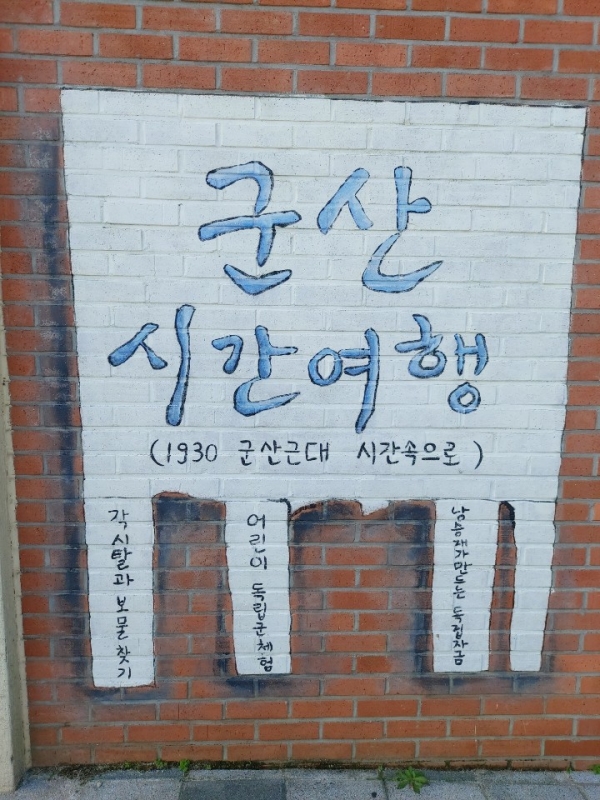 군산
시간여행
(1930 군산근대 시간속으로)
각시탈과 보물찾기
어린이 독립군체험
남승재가만드는 독립자금